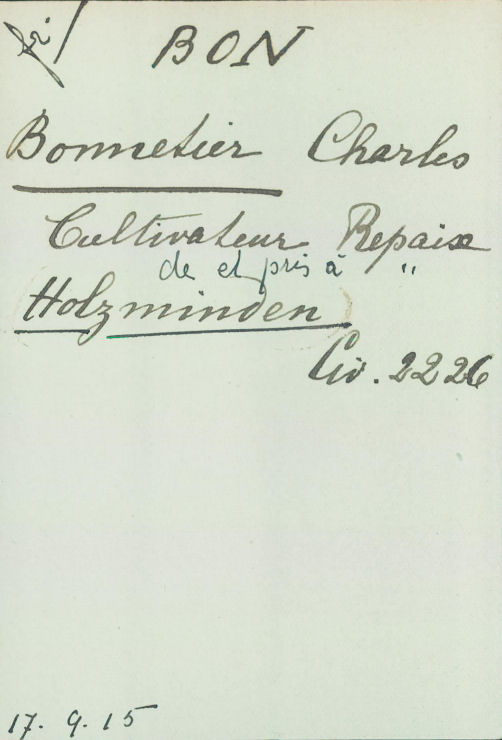 BON
Bonnetier Charles
Cultivateur Repaix
de et pris à "
Holzminden
Civ. 2226
17. 9. 15